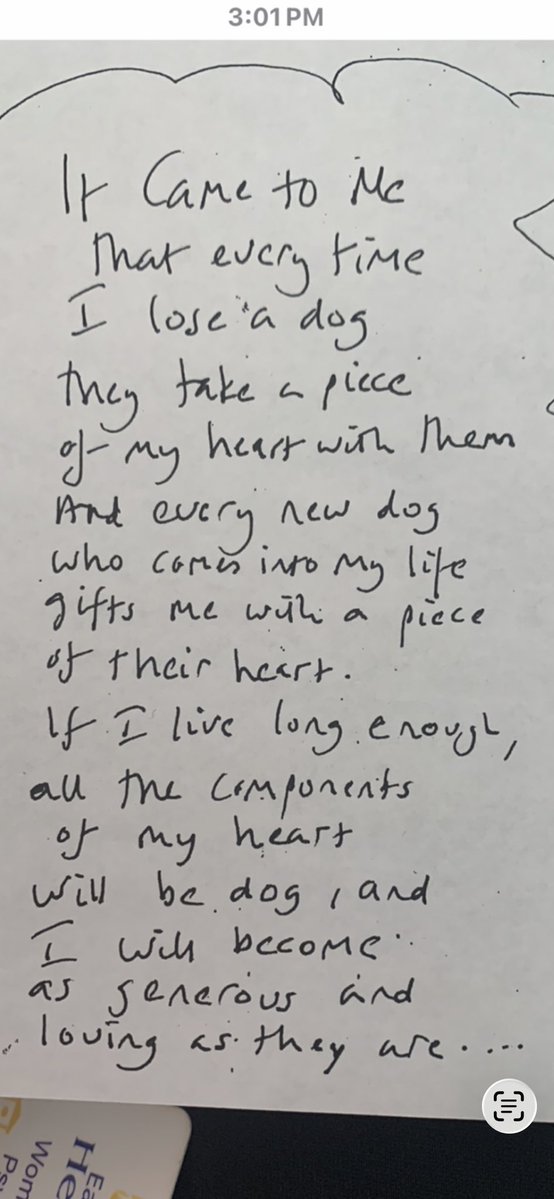 3:01 PM
It Came to Me
that every time
I lose a dog
they take a piece
of my heart with them
And every new dog
who comes into my life
gifts me with a piece
of their heart.
If I live long enough,
all the components
of my heart
will be dog, and
I will become
as generous and
loving as they are....
Ea
He
Wom
Ps